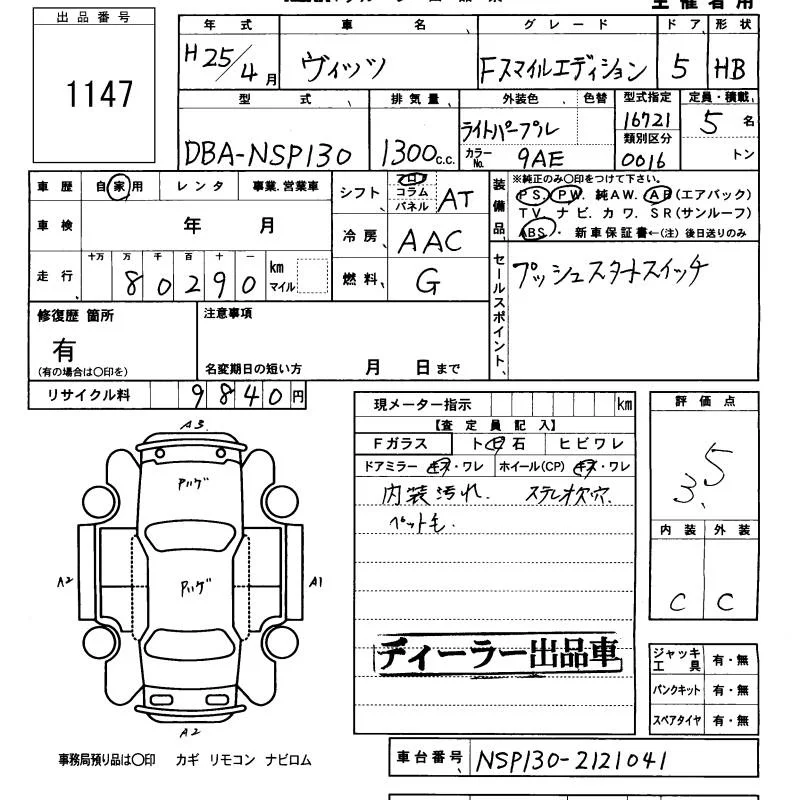 出品番号
1147
年式 車名 グレード ドア 形状
H25/4月 ヴィッツ Fスマイルエディション 5 HB
型式 排気量 外装色 色替 型式指定 定員・積載
DBA-NSP130 1300c.c. ライトパープル 16721 5名
カラーNo. 9AE 類別区分 0016 トン
車歴 自家用 レンタ 事業.営業車
車検 年 月
走行 十万 万 千 百 十 一 km マイル
80290
シフト フロ コラム パネル AT
冷房 AAC
燃料 G
装備品
※純正のみ〇印をつけて下さい。
PS. PW. 純AW. AB(エアバック)
TV. ナビ. カワ. SR(サンルーフ)
ABS. 新車保証書←(注)後日送りのみ
セールスポイント
プッシュスタートスイッチ
修復歴 箇所
有
(有の場合は〇印を)
注意事項
名変期日の短い方 月 日まで
リサイクル料 9840円
現メーター指示 km
【査定員記入】
Fガラス ト石 ヒビワレ
ドアミラー キズ・ワレ ホイール(CP) キズ・ワレ
内装汚れ. ステレオ欠穴.
ペット毛.
ディーラー出品車
評価点
3.5
内装 外装
C C
A3.
アハゲ
A2 アハゲ A1
A2
ジャッキ工具 有・無
パンクキット 有・無
スペアタイヤ 有・無
事務局預り品は〇印 カギ リモコン ナビロム
車台番号 NSP130-2121041